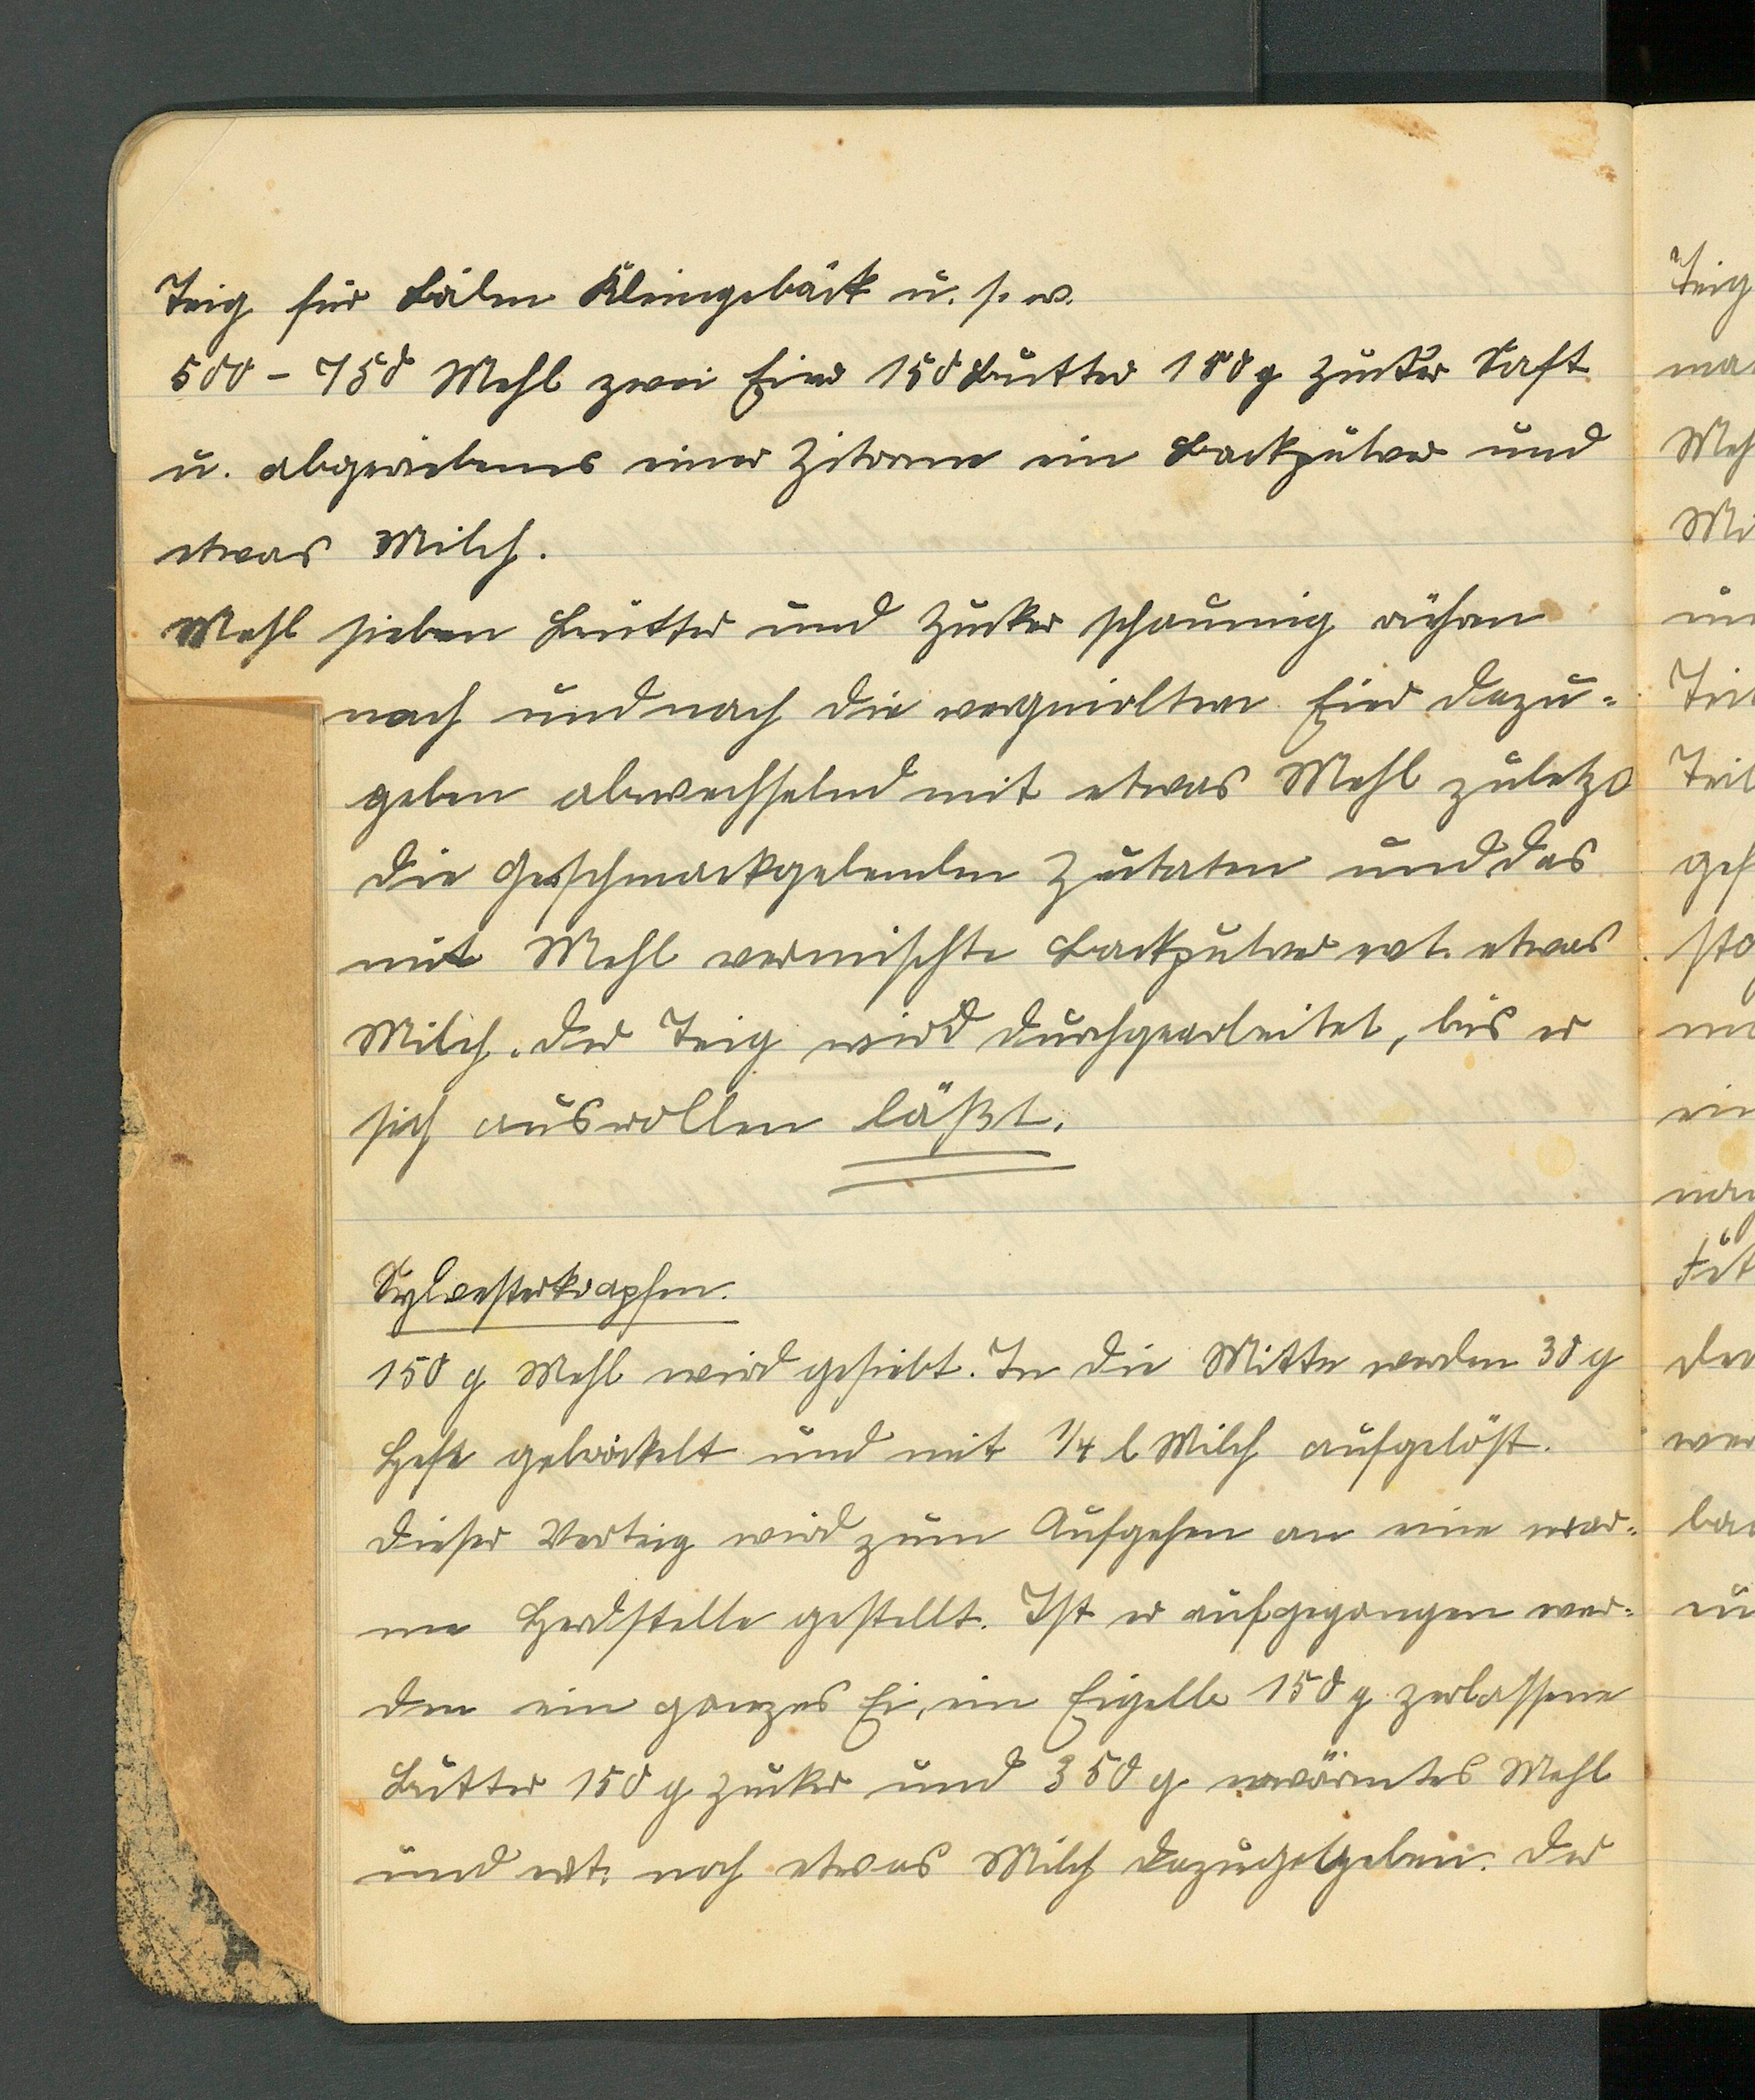 Teig für Böden Kleingebäck u. s. w.
500 - 750 Mehl zwei Eier 150 Butter 180 g Zucker Saft
u. abgeriebenes einer Zitrone ein Backpulver und
etwas Milch.
Mehl sieben Butter und Zucker schaumig rühren
nach und nach die verquirlten Eier dazu-
geben abwechselnd mit etwas Mehl zuletzt
die Geschmackgebenden Zutaten und das
mit Mehl vermischte Backpulver evt. etwas
Milch. Der Teig wird durchgearbeitet, bis er
sich ausrollen läßt.
Sylvesterkrapfen.
150 g Mehl wird gesiebt. In die Mitte werden 30 g
Hefe gebröckelt und mit 1/4 l Milch aufgelöst.
Dieser Vorteig wird zum Aufgehen an eine war-
me Herdstelle gestellt. Ist er aufgegangen wer-
den ein ganzes Ei, ein Eigelb 150 g zerlassene
Butter 150 g Zucker und 350 g erwärmtes Mehl
und evt. noch etwas Milch dazugegeben. Der